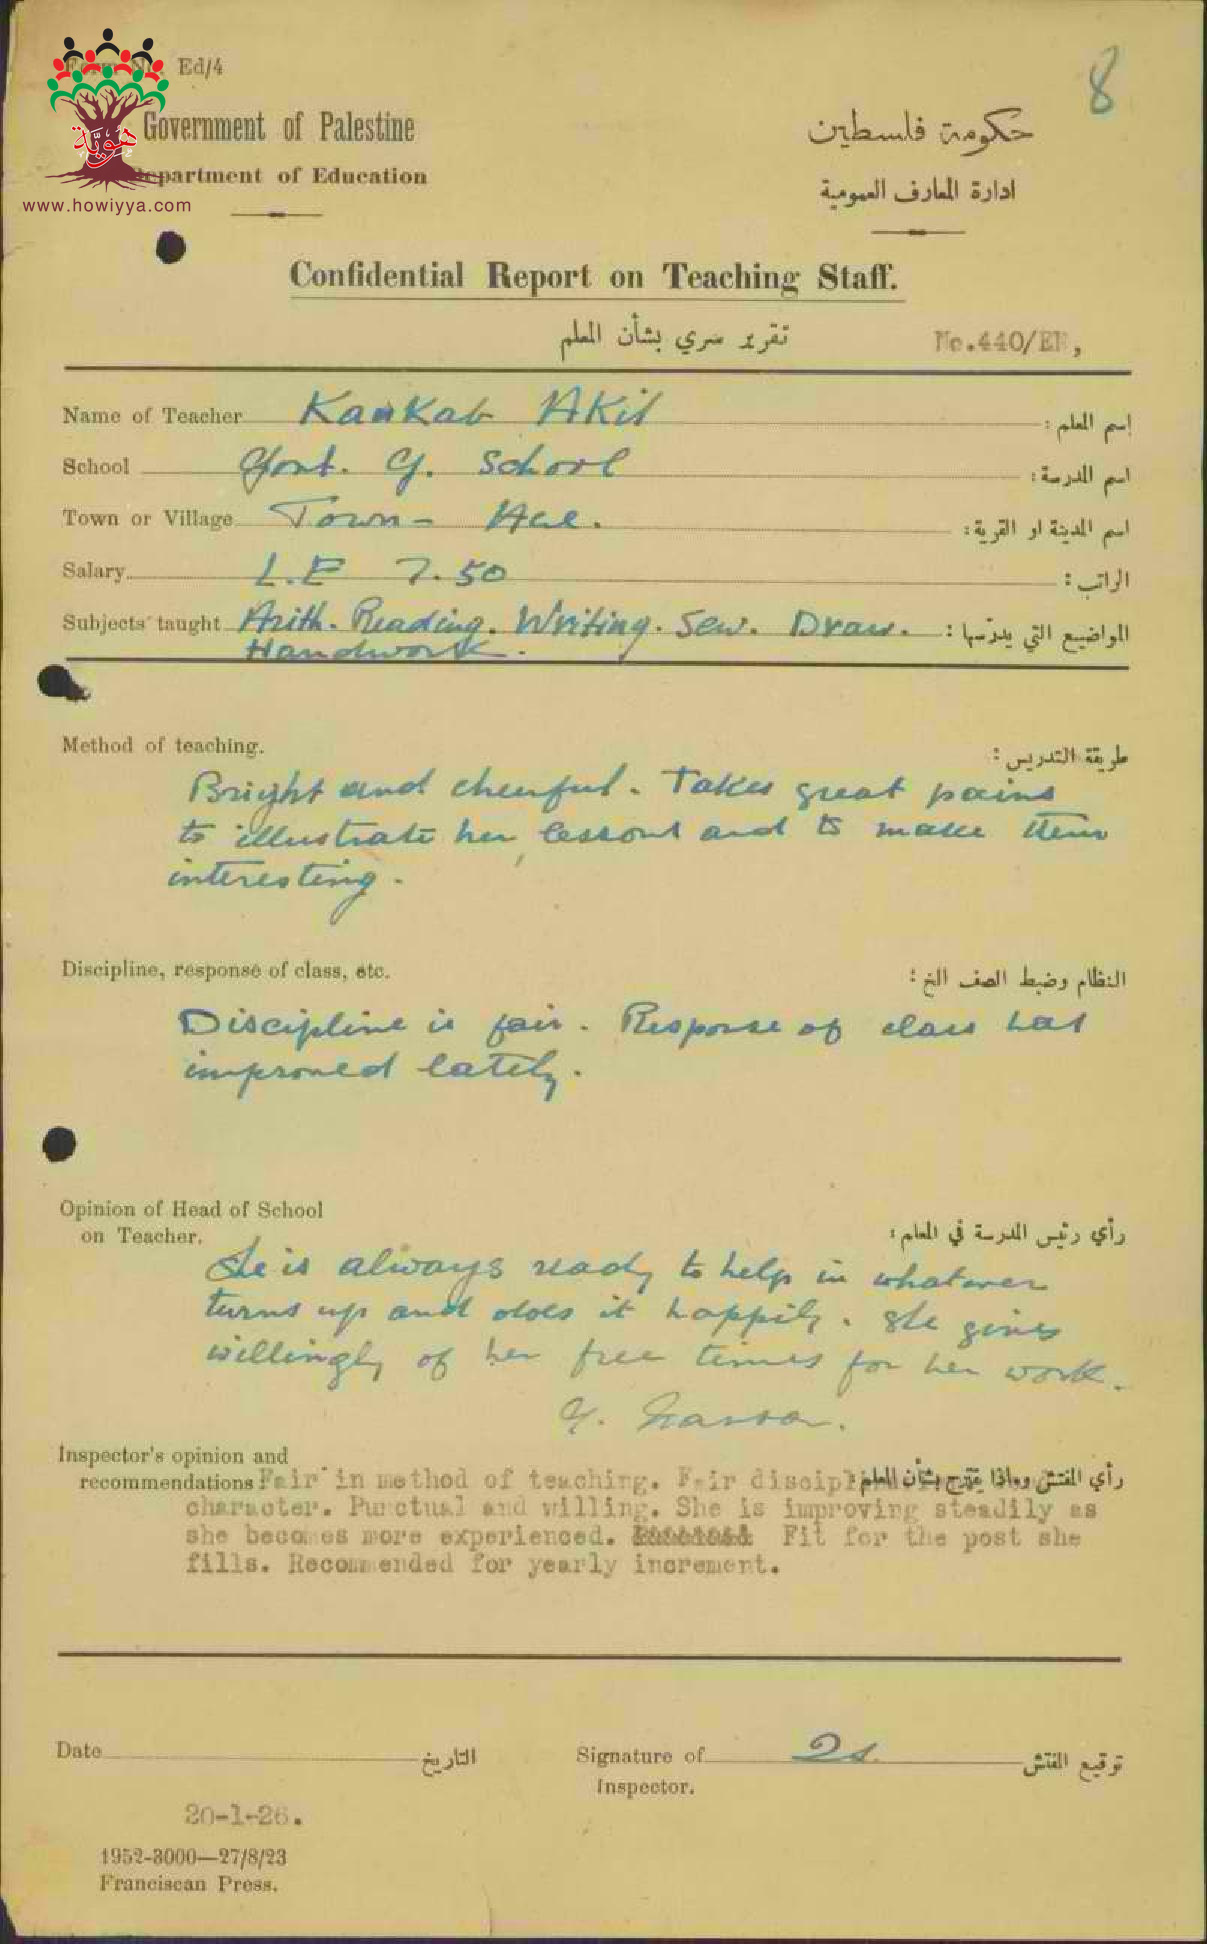 8
Form No. Ed/4
هويّة
www.howiyya.com
Government of Palestine
حكومة فلسطين
Department of Education
ادارة المعارف العمومية
Confidential Report on Teaching Staff.
تقرير سري بشأن المعلم
No.440/EN,
Name of Teacher Kaukab Akil إسم المعلم :
School Govt. G. School اسم المدرسة :
Town or Village Town - Acre. اسم المدينة او القرية :
Salary L.E 7.50 الراتب :
Subjects taught Arith. Reading. Writing. Sew. Draw. المواضيع التي يدرّسها :
Handwork.
Method of teaching. طريقة التدريس :
Bright and cheerful. Takes great pains
to illustrate her lessons and to make them
interesting.
Discipline, response of class, etc. النظام وضبط الصف الخ :
Discipline is fair. Response of class has
improved lately.
Opinion of Head of School
on Teacher. رأي رئيس المدرسة في المعلم :
She is always ready to help in whatever
turns up and does it happily. She gives
willingly of her free times for her work.
Inspector's opinion and
recommendations رأي المفتش وماذا يقترح بشأن المعلم :
Fair in method of teaching. Fair discipline.
character. Punctual and willing. She is improving steadily as
she becomes more experienced. Fit for the post she
fills. Recommended for yearly increment.
Date التاريخ
Signature of توقيع المفتش
Inspector.
20-1-26.
1952-3000—27/8/23
Franciscan Press.